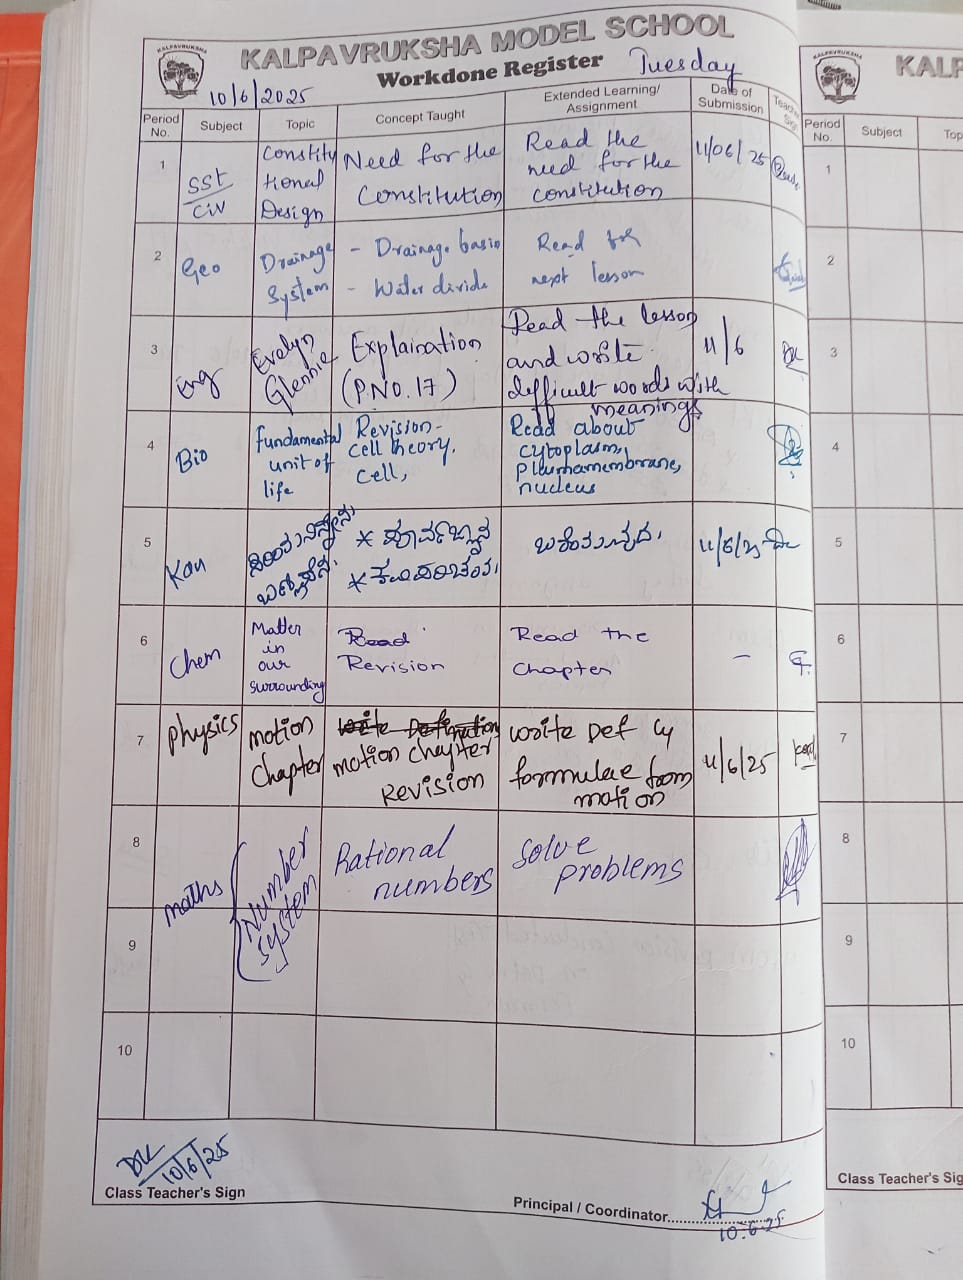 KALPAVRUKSHA
KALPAVRUKSHA MODEL SCHOOL
Workdone Register
Tuesday
10/6/2025
Period No.
Subject
Topic
Concept Taught
Extended Learning/ Assignment
Date of Submission
Teacher Sign
1
SST
Civ
Constitu
tional
Design
Need for the
Constitution
Read the
need for the
constitution
11/06/25
2
Geo
Drainage
System
- Drainage basin
- Water divide
Read for
next lesson
3
Eng
Evelyn
Glennie
Explaination
(P.NO.17)
Read the lesson
and write
difficult words with
meanings
11/6
DK
4
Bio
Fundamental
unit of
life
Revision-
cell theory,
cell,
Read about
cytoplasm,
Plasmamembrane,
nucleus
5
Kan
11/6/25
6
Chem
Matter
in
our
surrounding
Read
Revision
Read the
Chapter
-
7
physics
motion
Chapter
write Defination
motion chapter
Revision
write Def &
formulae from
motion
11/6/25
8
maths
Number
System
Rational
numbers
Solve
problems
9
10
DK
10/6/25
Class Teacher's Sign
Principal / Coordinator
10.6.25
KALPAVRUKSHA
KALP
Period No.
Subject
Top
1
2
3
4
5
6
7
8
9
10
Class Teacher's Sig